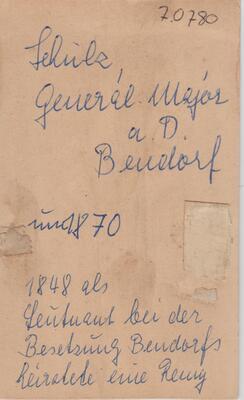 7.0780
Schulz,
Generál. Majór
a D.
Bendorf
um 1870
1848 als
Leutnant bei der
Besetzung Bendorfs
heiratete eine Remy